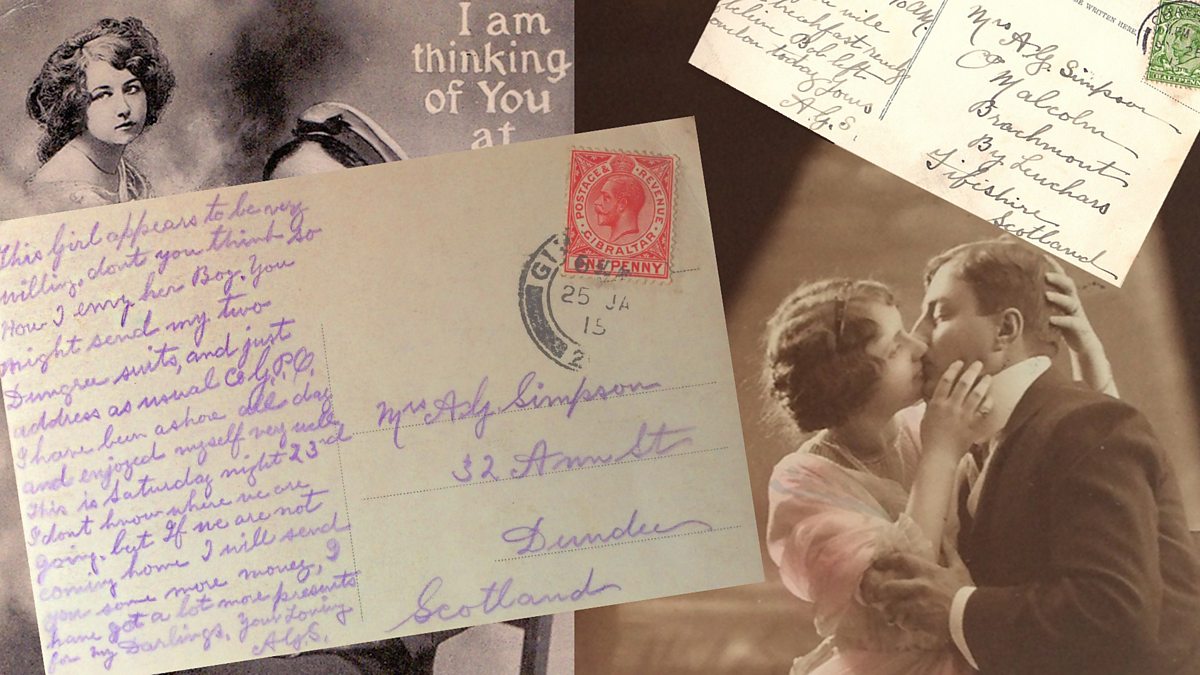 I am
thinking
of You
at
This Girl appears to be very
willing, dont you think so
How I envy her Boy. You
might send my two
Dungree suits, and just
address as usual C/o G.P.O.
I have been ashore all day
and enjoyed myself very well,
This is Saturday night 23rd
I dont know where we are
going, but If we are not
coming home I will send
you some more money, I
have got a lot more presents
for my Darlings, Your Loving
A.G.S.
POSTAGE & REVENUE
GIBRALTAR
ONE PENNY
25 JA
15
Mrs A.G. Simpson
32 Ann St
Dundee
Scotland
10 AM.
mile
breakfast ready
Bob left
London today Yours
A.G.S.
BE WRITTEN HERE.
HALF PENNY
Mrs A.G. Simpson
C/o Malcolm
Brachmont
By Leuchars
Fifeshire
Scotland